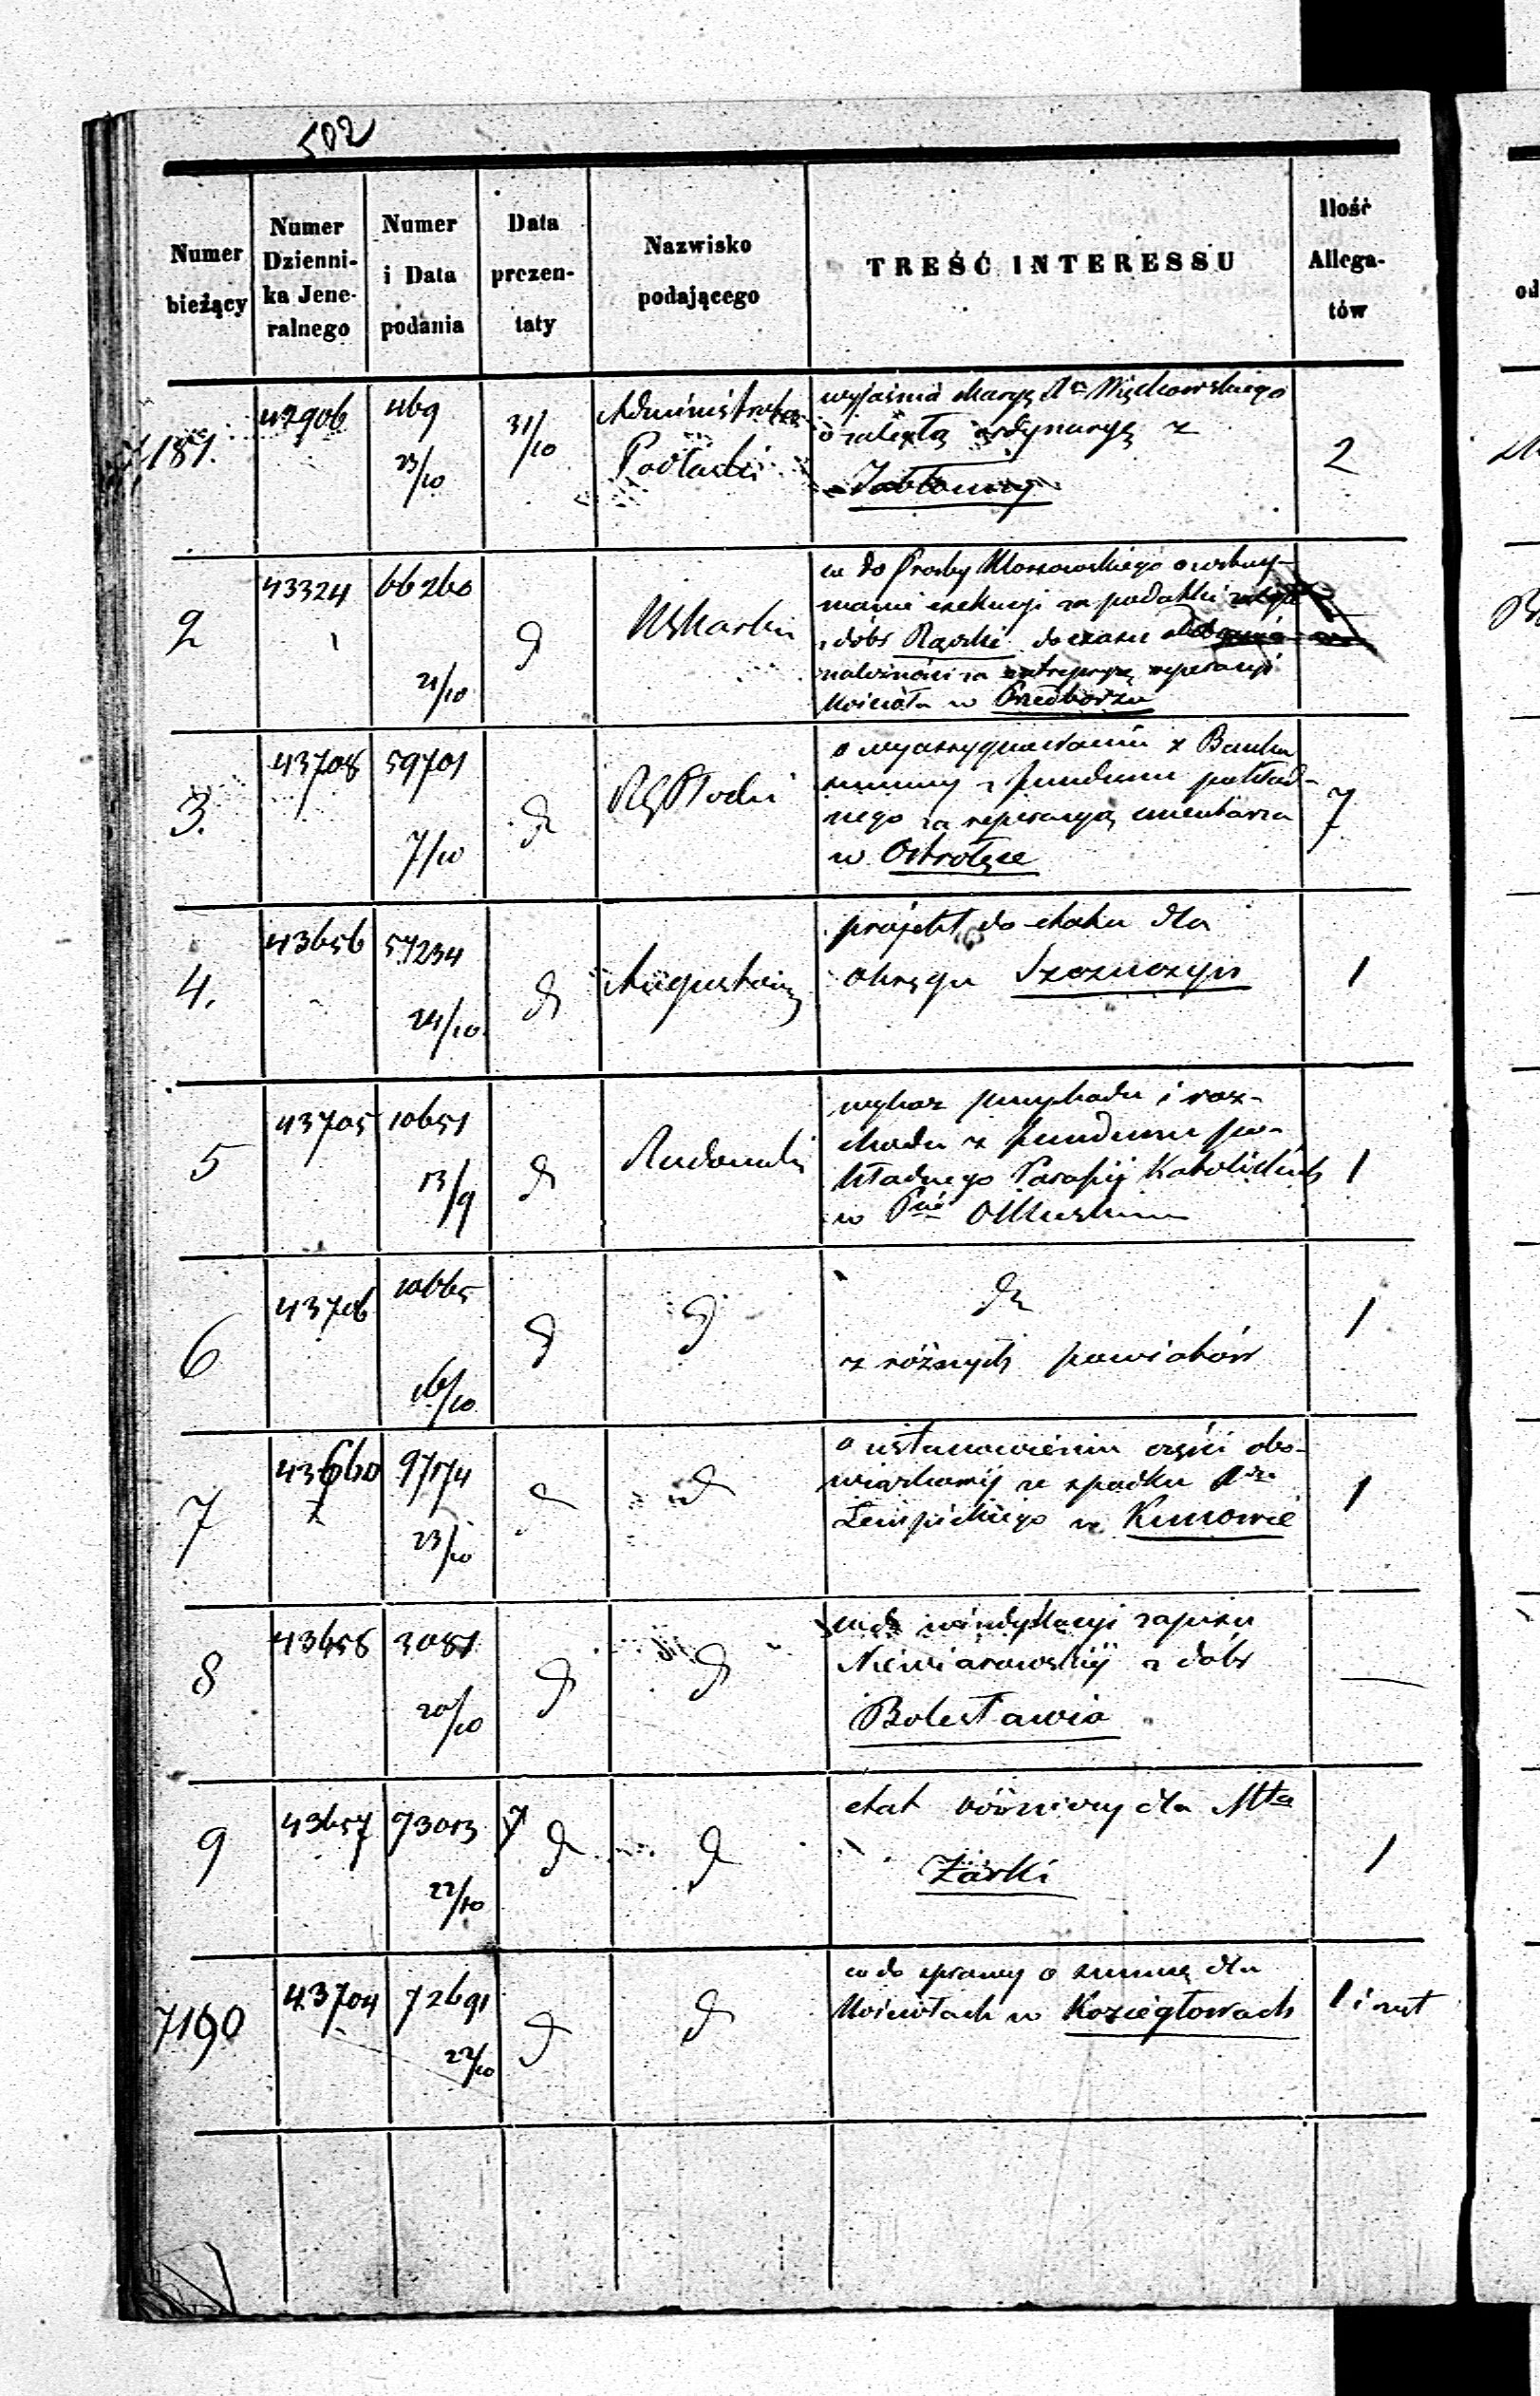 502
Numer bieżący
Numer Dzienni-ka Jene-ralnego
Numer i Data podania
Data prezen-taty
Nazwisko podającego
TREŚĆ INTERESSU
Ilość Allega-tów
7181. 42906 469 23/10 31/10 Administrator Podlaski
wyjaśnia skargę
o zaległą ordynaryę z
Jabłonny
2
2 43324 66260 21/10 d
co do Prośby Kłossowskiego o wstrzy-
manie exekucji za podatki
z dóbr Rączki do czasu
należności za entrepryzę reperacyi
Kościoła w Przedborzu
3. 43708 59701 7/10 do RG Płocki
o wyasygnowanie z Banku
summy z funduszu pokład-
nego za reperacyą cmentarza
w Ostrołęce
7
4. 43656 57234 24/10 do Augustowski
projekt do etatu dla
okręgu Szczuczyn
1
5 43705 10651 13/9 do Radomski
wykaz przychodu i roz-
chodu z funduszu po-
kładnego Parafij Katolickich
w Pcie Olkuskim
1
6 43706 10665 16/10 d d
do
z różnych powiatów
1
7 43660 97174 23/10 d d
o ustanowieniu części obo-
wiązkowej ze spadku
Łempickiego w Kunowie
1
8 43658 3081 20/10 do do
wzdz windykacyi zapisu
Niewiarowskiej z dóbr
Bolesławia
—
9 43657 73013 22/10 do do
etat różnicy dla Mta
Żarki
1
7190 43704 72691 22/10 d do
co do sprawy o summę dla
Kościołach w Koziegłowach
1 i